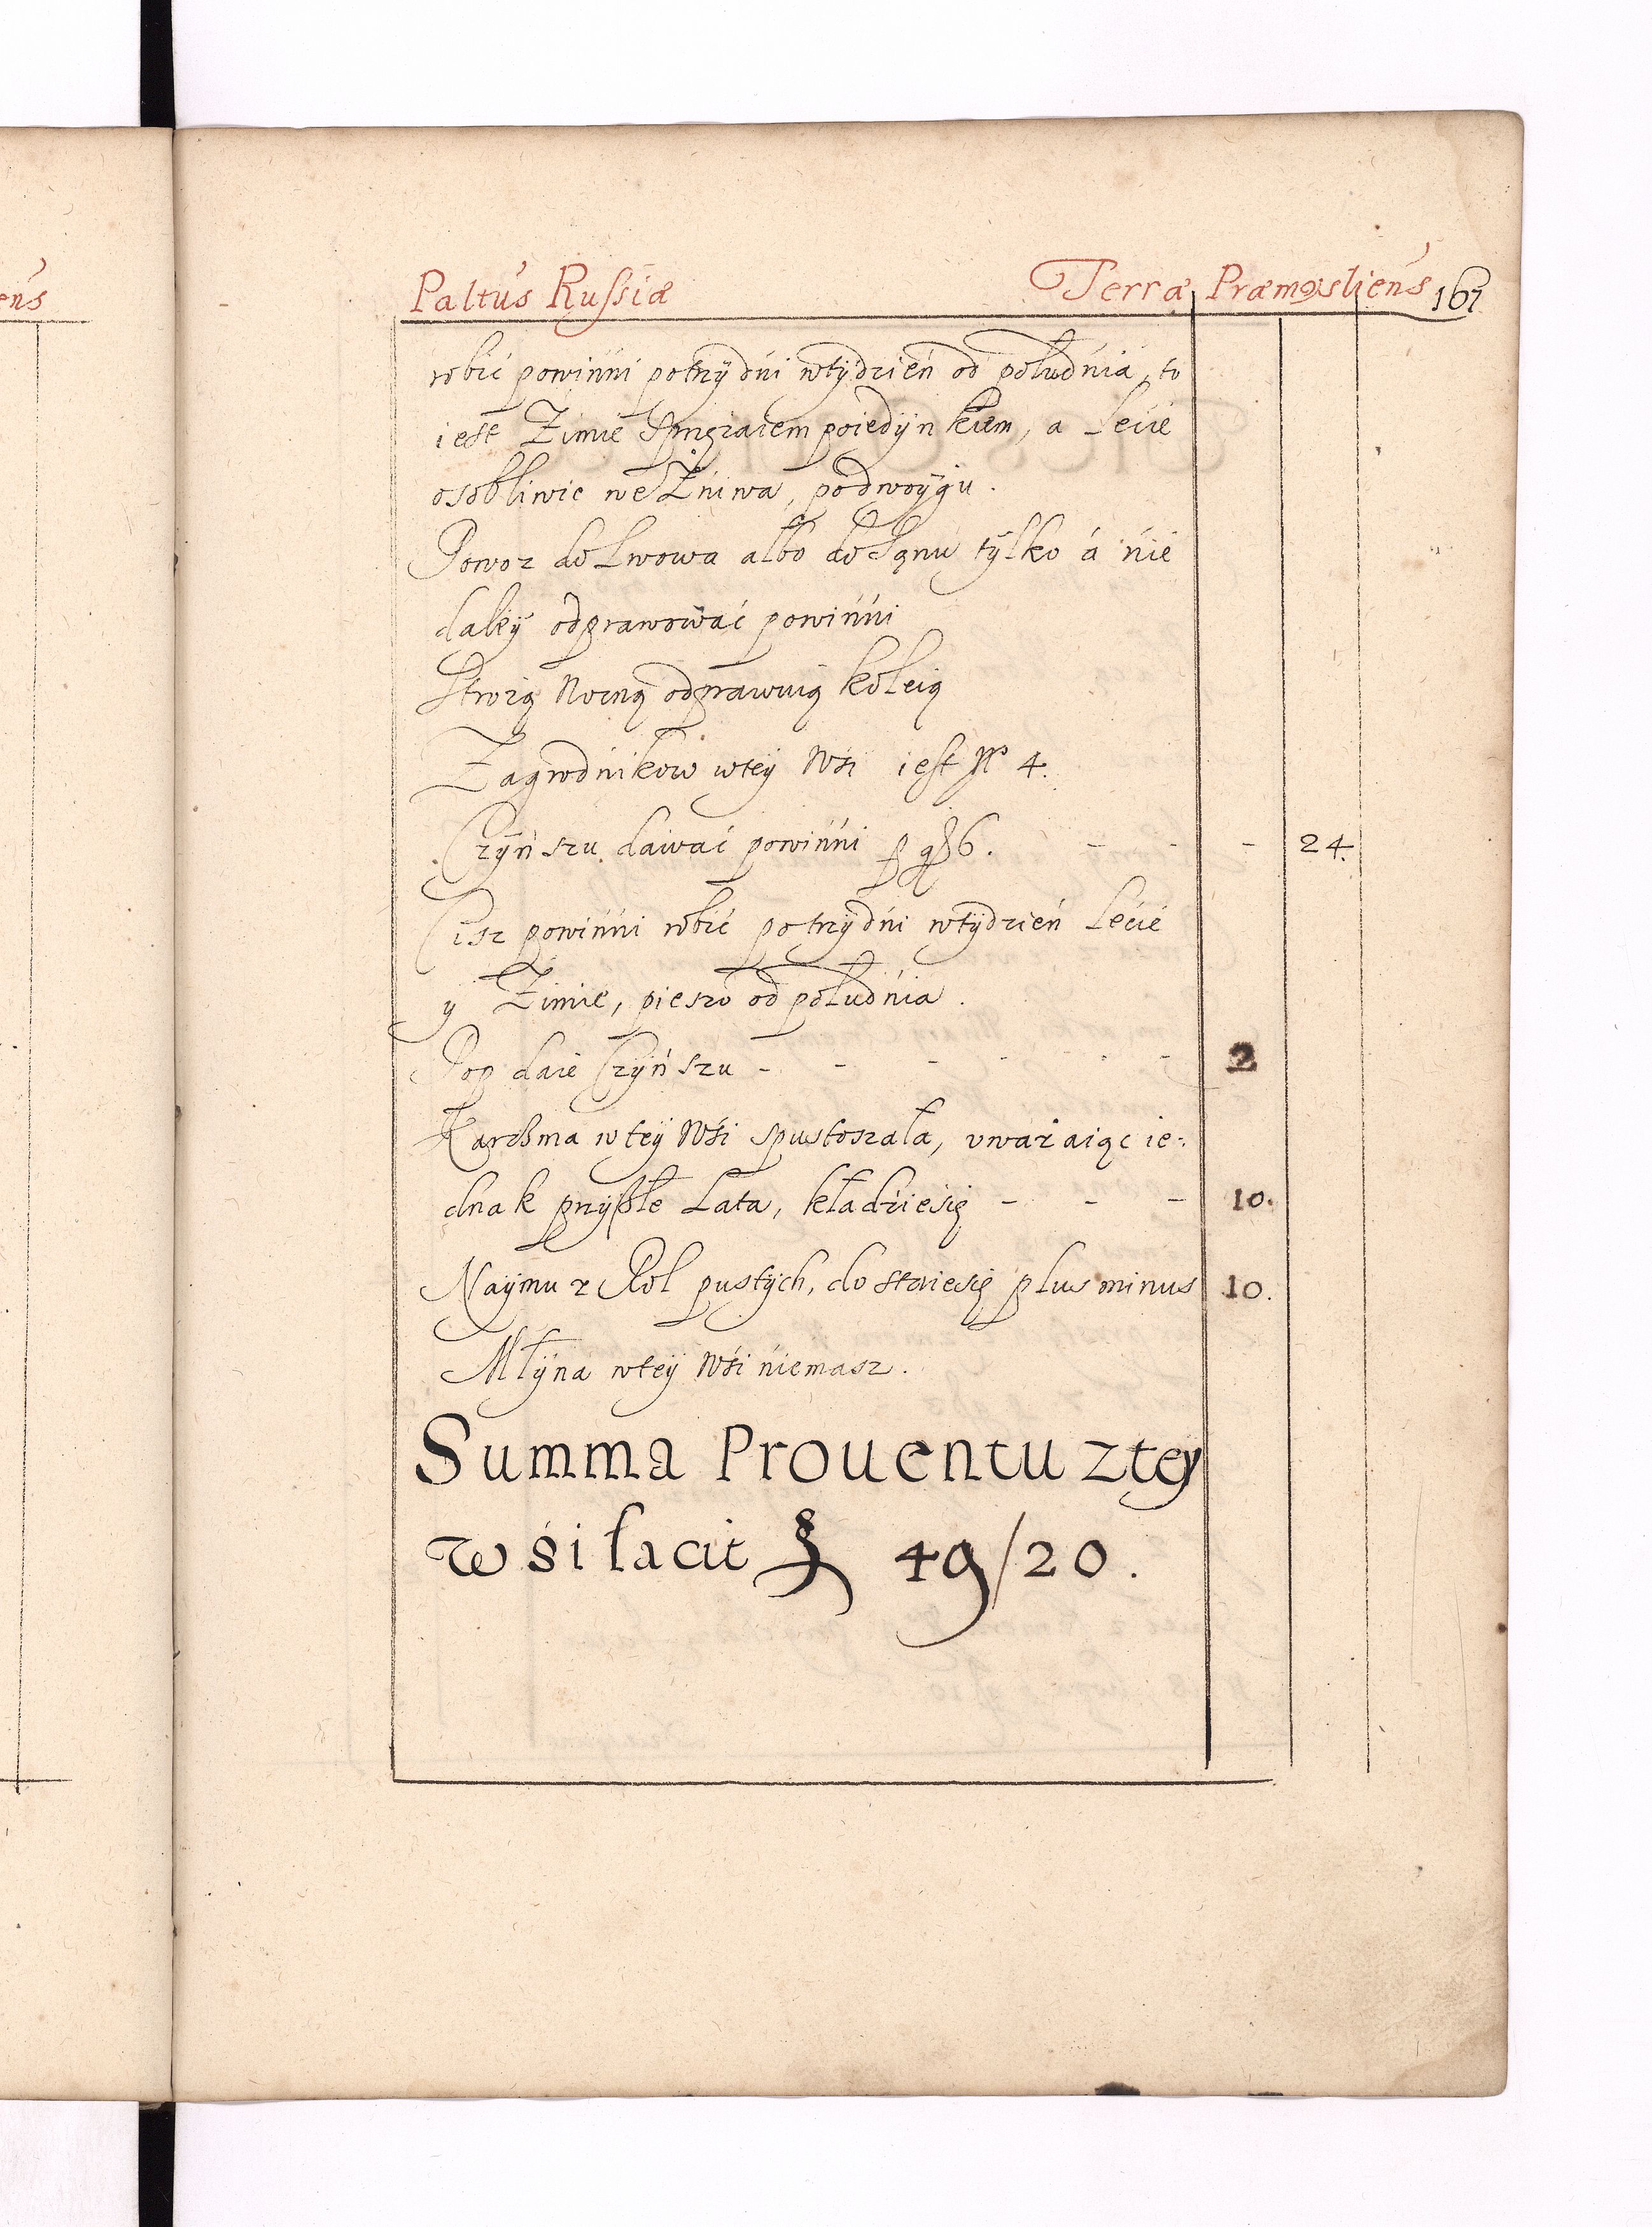 ens
Paltus Russiæ Terræ Præmysliens 167
robić powinni potrzy dni wtydzień od południa, to
iest Zimie Sprzęzaiem poiedynkiem, a Lecie
osobliwie we Żniwa, podwoygu.
Powoz do Lwowa albo do Sanu tylko á nie
daley odprawować powinni
Strożą Nocną odprawuią koleią
Zagrodnikow wtey Wsi iest No 4.
Czynszu dawać powinni p gs 6. - - - 24.
Cisz powinni robić potrzy dni wtydzień Lecie
y Zimie, pieszo od południa.
Pop daie Czynszu - - - - - - 2
Karczma wtey Wsi spustoszała, uważaiąc ie-
dnak przyszłe Lata, kładziesię - - - 10.
Naymu z Rol pustych, dostaiesię plus minus 10.
Młyna wtey Wsi niemasz.
Summa Prouentu ztey
wsi facit 49/20.